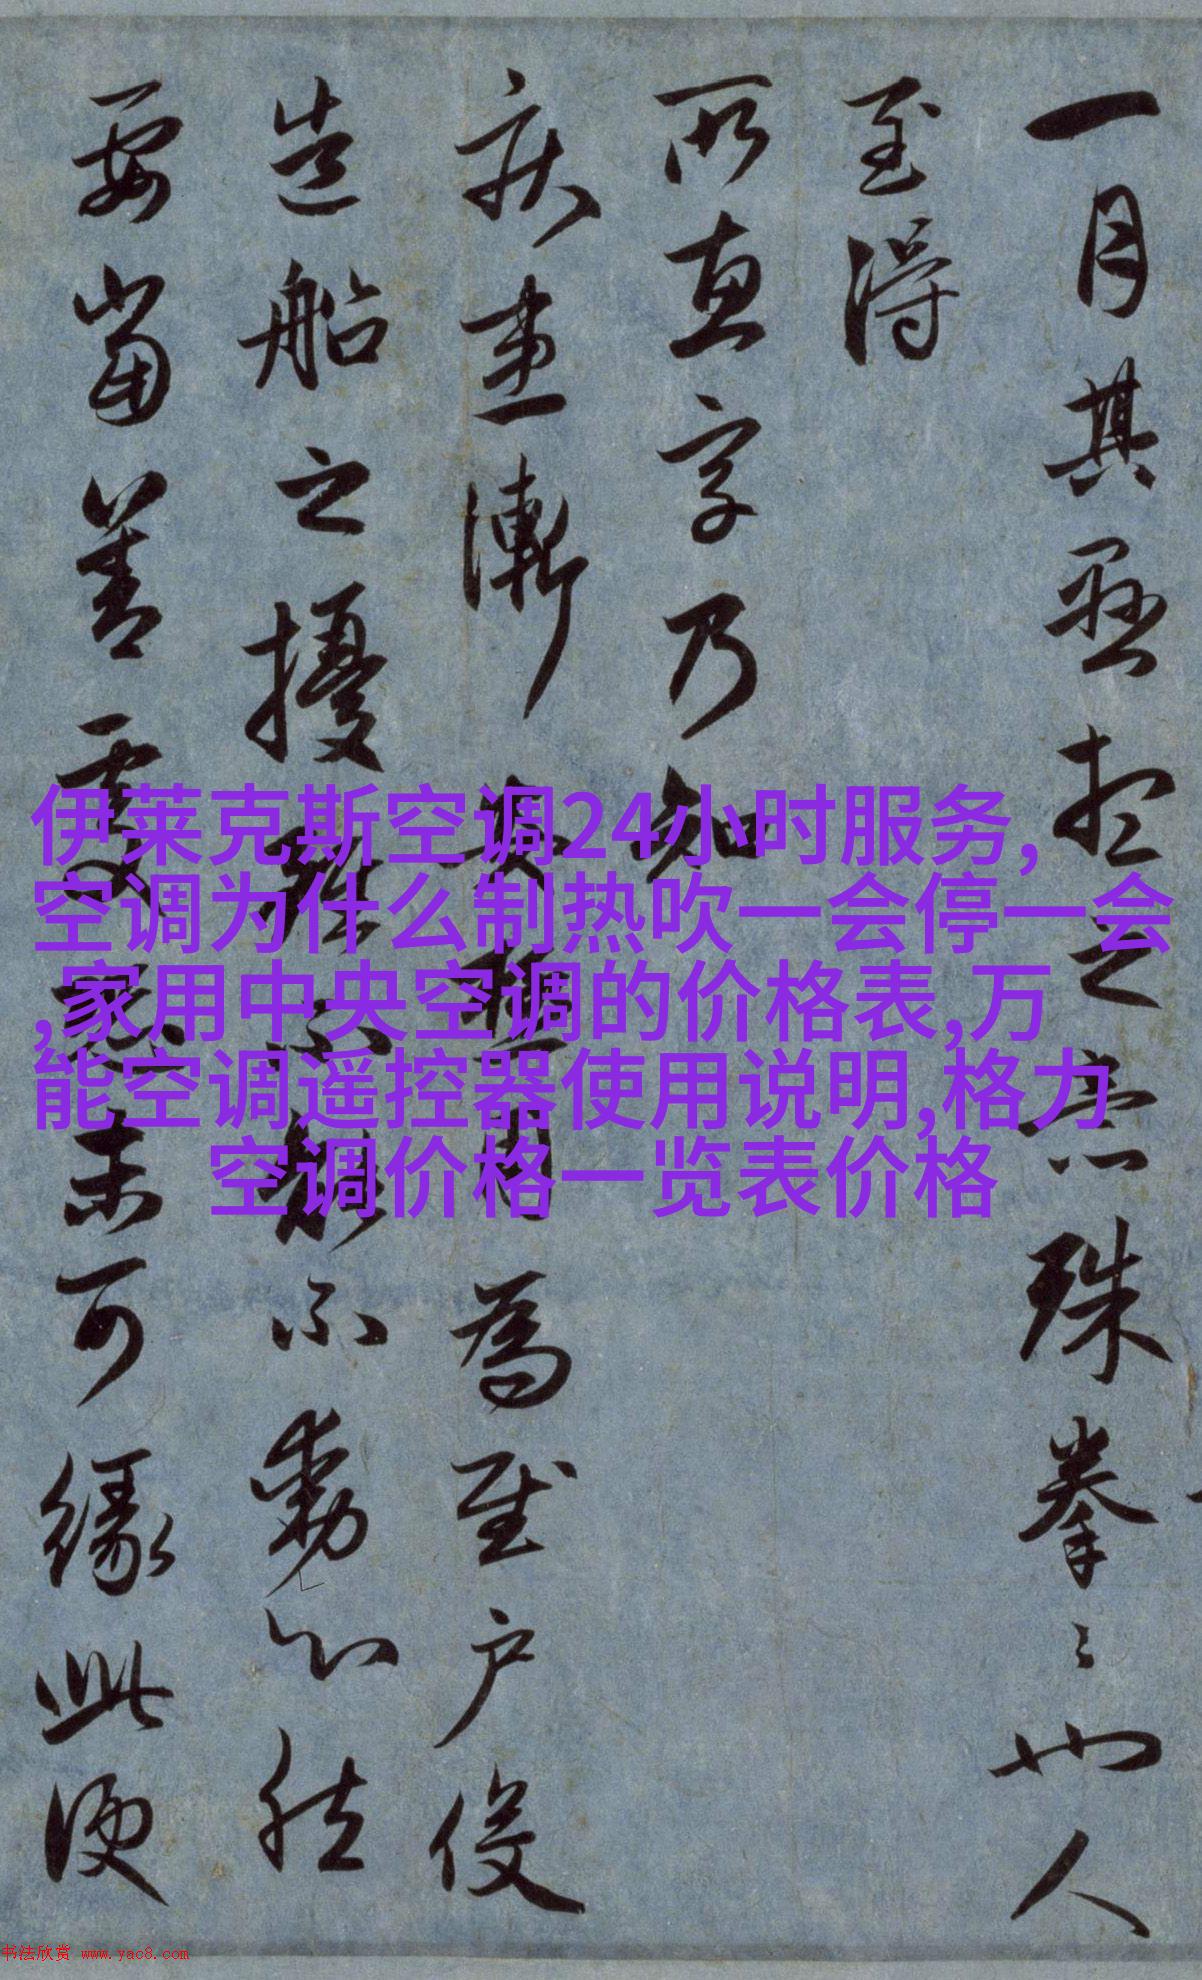 一月其恐打之意殊拳〻也人
至得
所直字乃知
疾患漸
為至户役
造船之擾
不動心
要當善
未可緣此便
伊莱克斯空调24小时服务,
空调为什么制热吹一会停一会
,家用中央空调的价格表,万
能空调遥控器使用说明,格力
空调价格一览表价格
书法欣赏 www.yac8.com